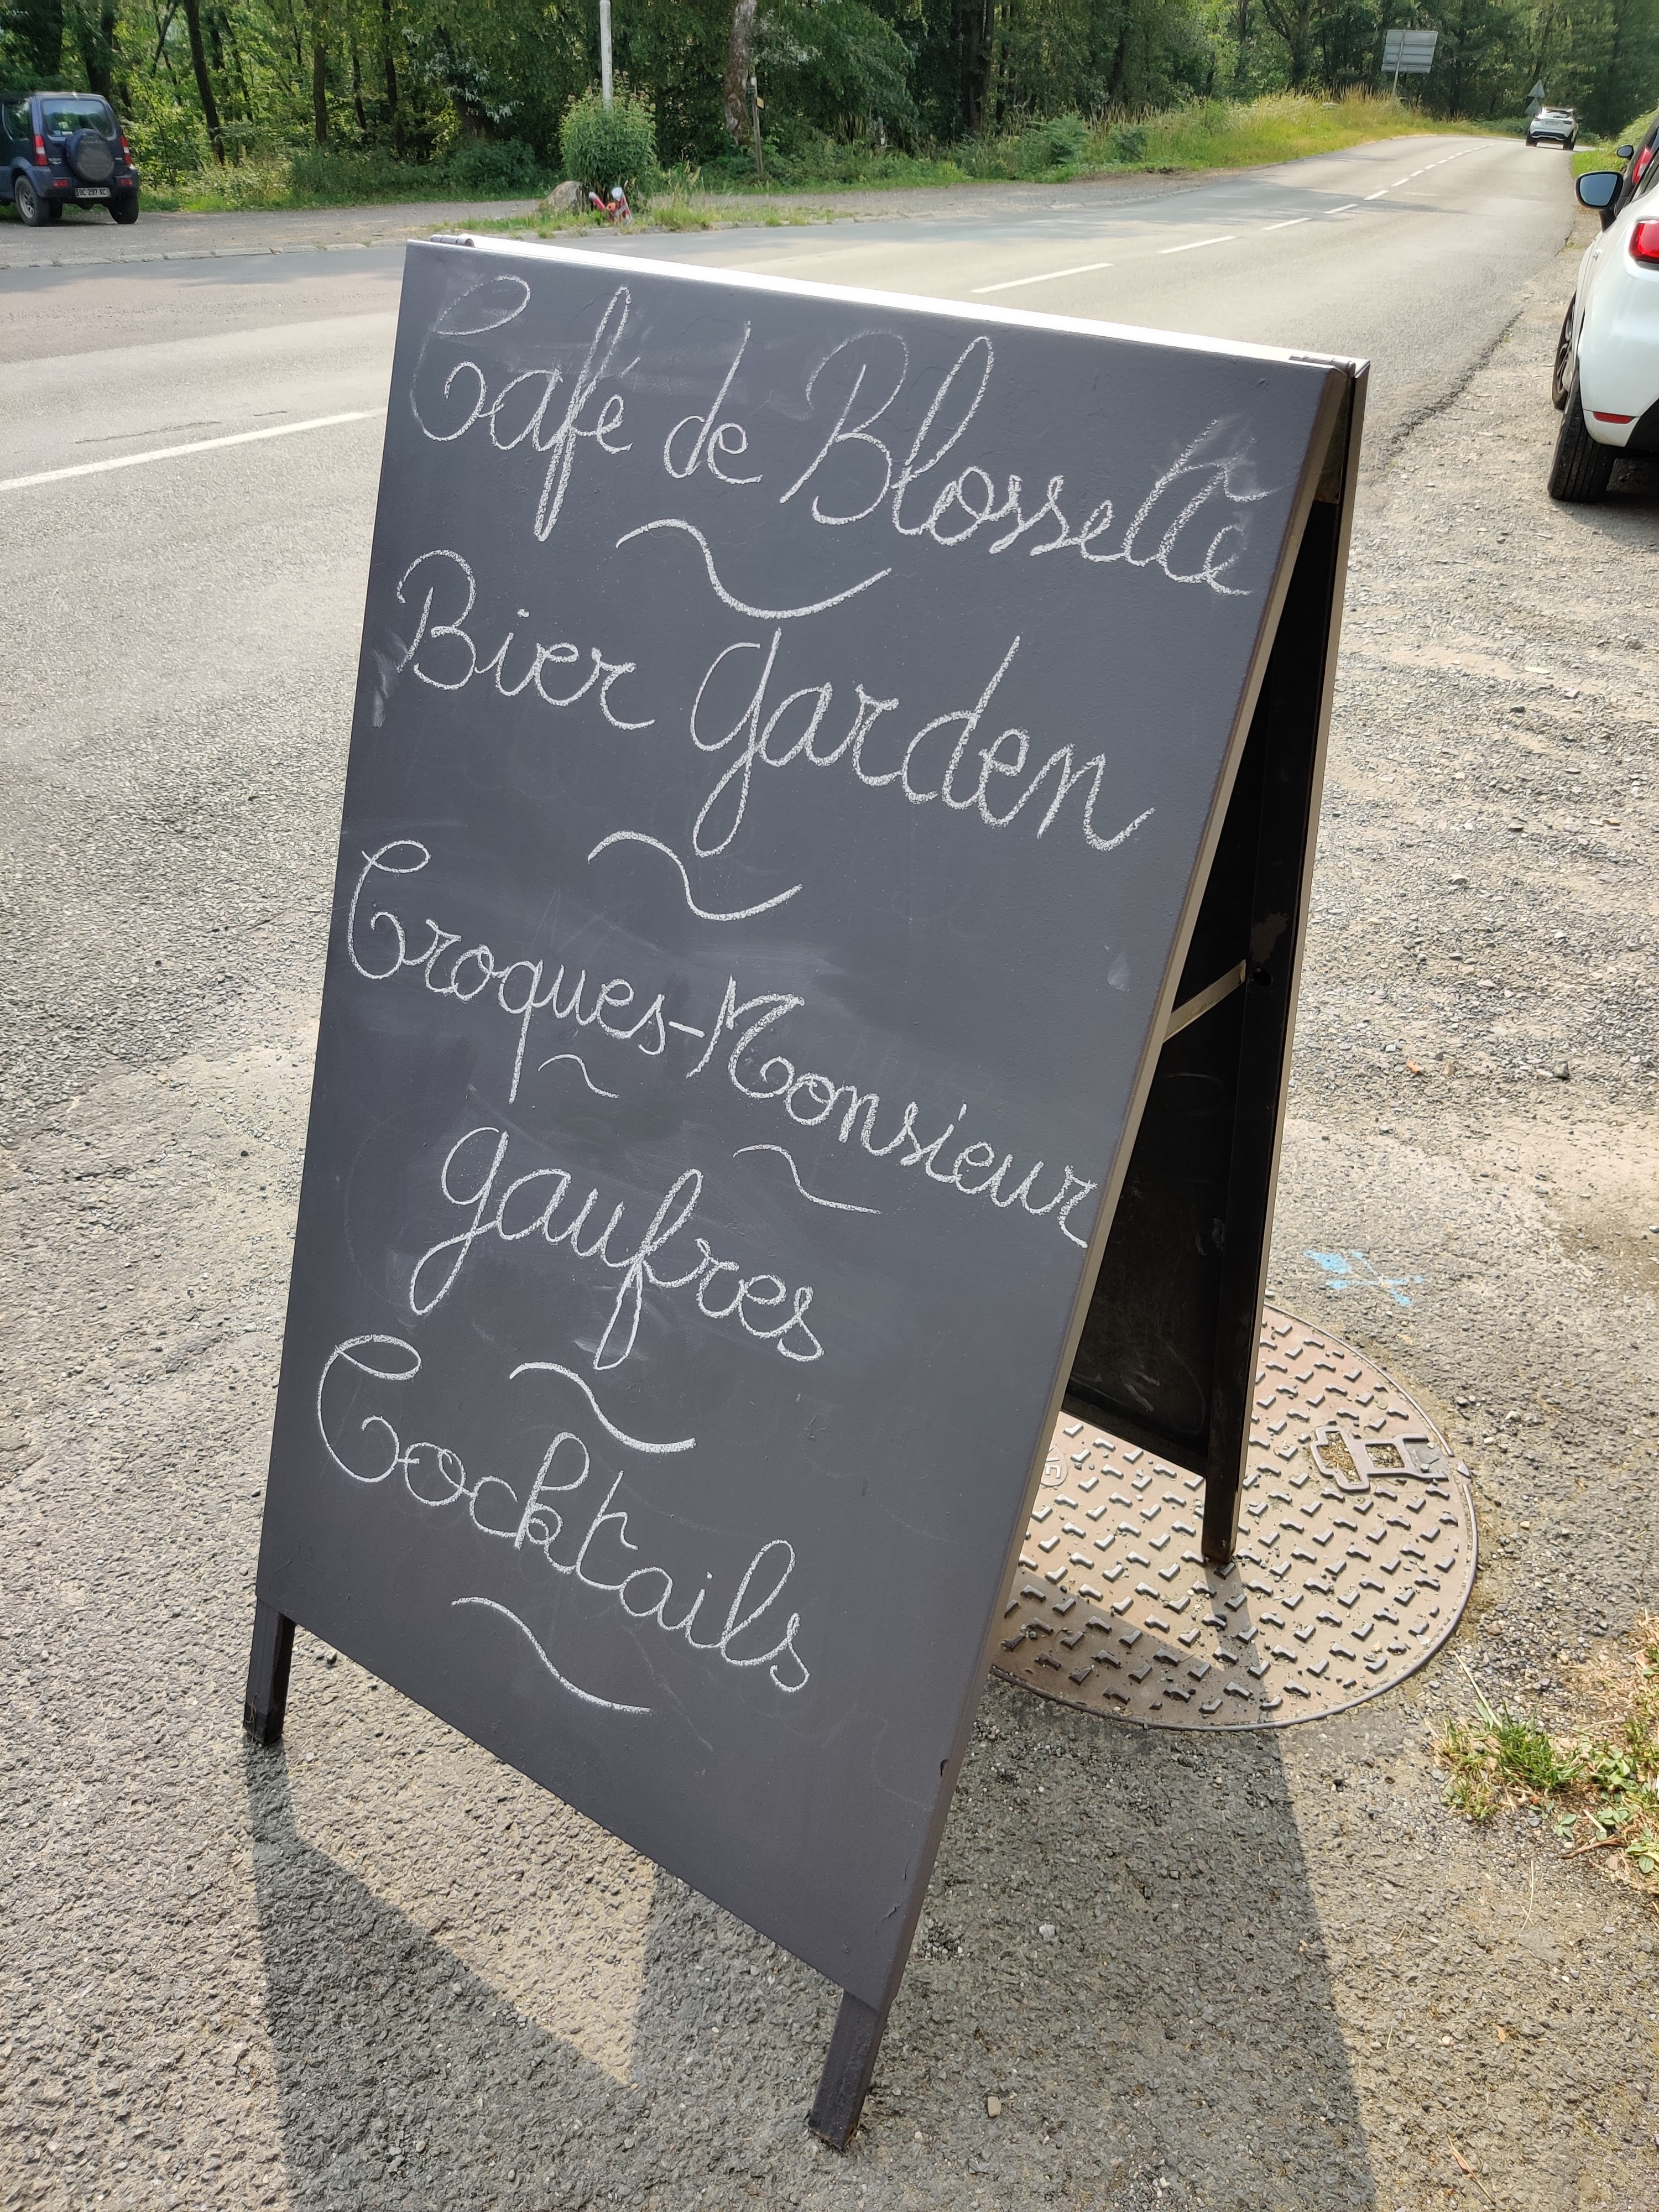 Café de Blossette
Bier garden
Croques-Monsieur
gaufres
Cocktails